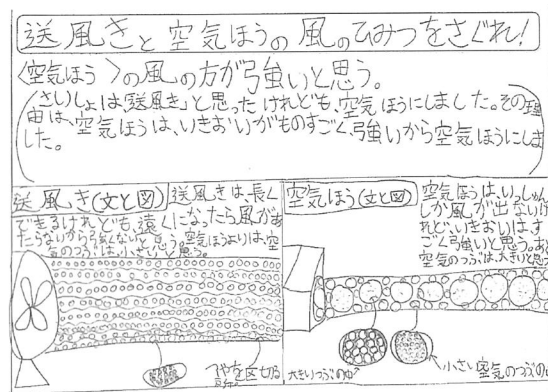 送風きと空気ほうの風のひみつをさぐれ!
〈空気ほう 〉の風の方が強いと思う。
(さいしょは「送風き」と思ったけれども、空気ほうにしました。その理
由は、空気ほうは、いきおいがものすごく、強いから空気ほうにしま
した。
送風き(文と図)
送風きは、長く
できるけれども、遠くになったら風があ
たらないから
と思う。空気ほうよりは、空
気のつぶは、小さいと思う。
空気ほう(文と図)
空気ほうは、いっしゅん
しか風が出ないけ
れど、いきおいは、す
ごく強いと思う。
空気のつぶは、大きいと思う
を区切る
大きいつぶの中
小さい空気のつぶの